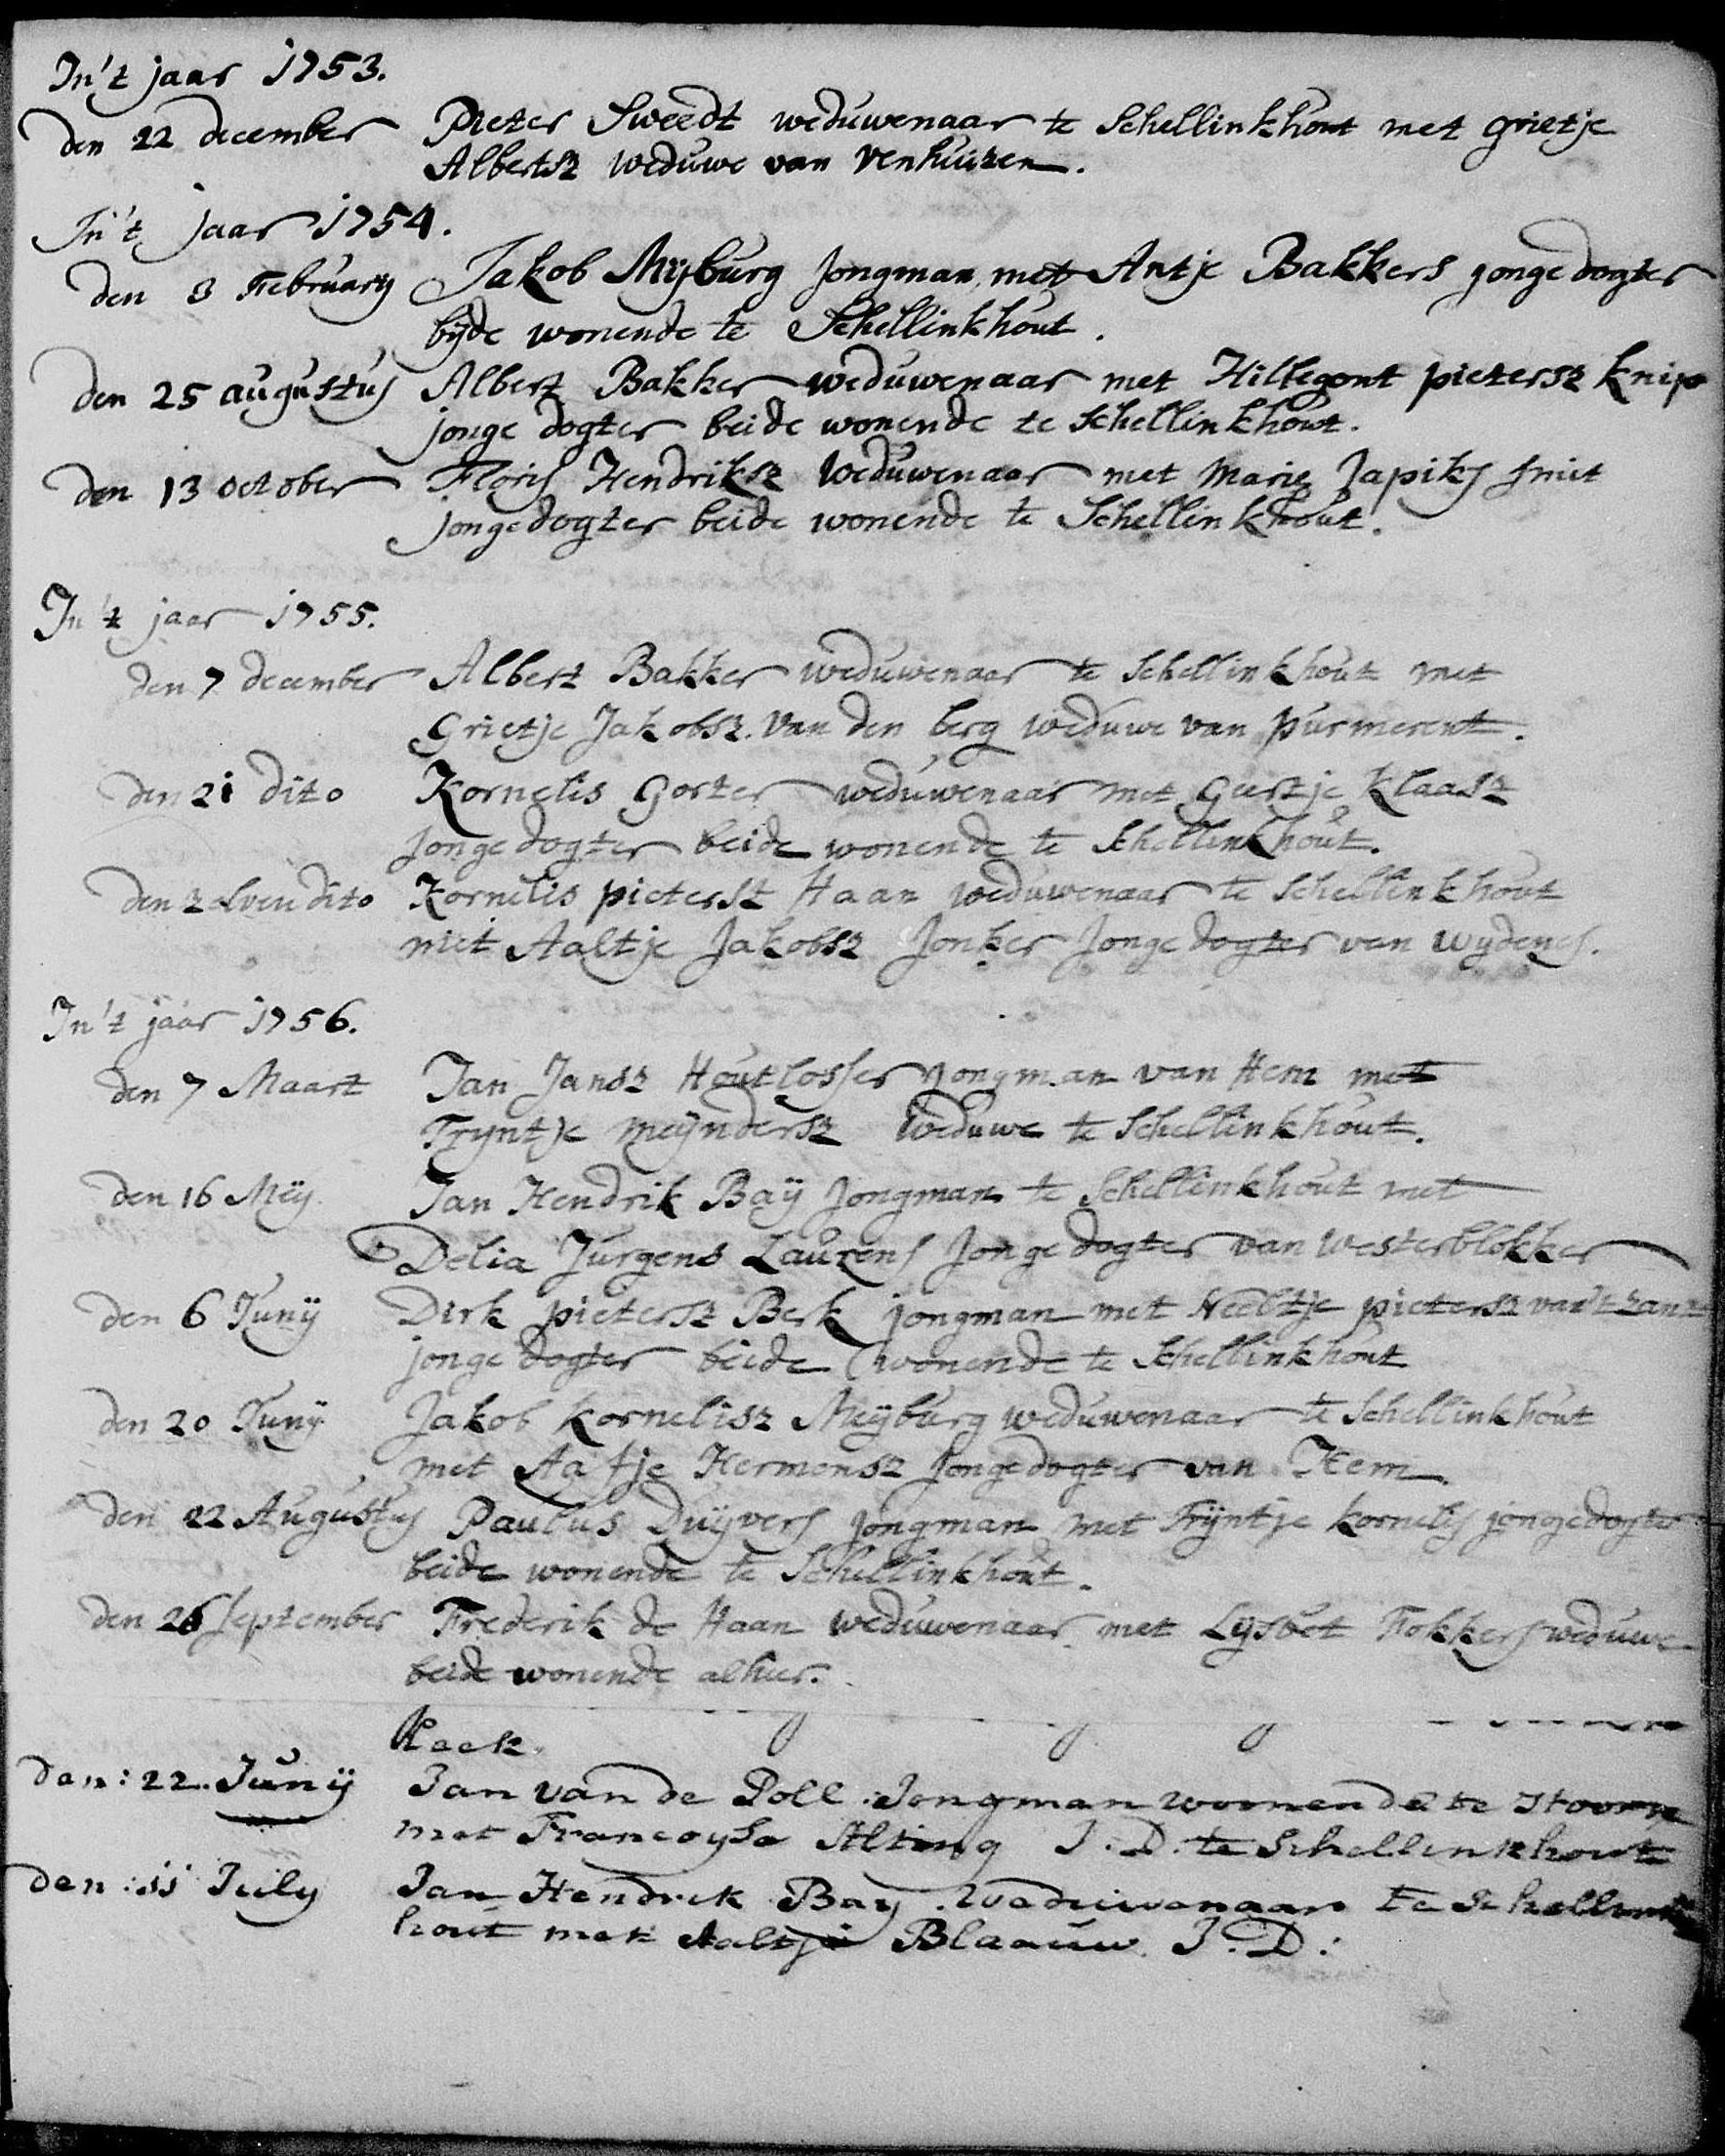 In't jaar 1753.
den 22 december Pieter Sweedt weduwenaar te Schellinkhout met grietje
Albertsz weduwe van venhuizen.
In't jaar 1754.
den 3 February Jakob Mijburg jongman met Antje Bakkers jonge dogter
bijde wonende te Schellinkhout.
den 25 augustus Albert Bakker weduwenaar met Hillegont pietersz knip
jonge dogter beide wonende te Schellinkhout.
den 13 october Floris Hendriksz weduwenaar met Marie Japiks smit
jongedogter beide wonende te Schellinkhout.
In't jaar 1755.
den 7 december Albert Bakker weduwenaar te Schellinkhout met
Grietje Jakobsz. van den berg weduwe van purmerent.
den 21 dito Kornelis Gorter weduwenaar met Geertje Klaasz
jonge dogter beide wonende te Schellinkhout.
den zelven dito Kornelis pietersz Haan weduwenaar te Schellinkhout
met Aaltje Jakobsz Jonker Jonge dogter van wydenes.
In't jaar 1756.
den 7 Maart Jan Jansz Houtlosser jongman van Hem met
Tryntje meijndersz weduwe te Schellinkhout.
den 16 Meij Jan Hendrik Baij Jongman te Schellinkhout met
Delia Jurgens Laurens Jonge dogter van westerblokker
den 6 Junij Dirk pietersz Berk jongman met Neeltje pietersz van't zant
jonge dogter beide wonende te Schellinkhout
den 20 Junij Jakob kornelisz Meijburg weduwenaar te Schellinkhout
met Aafje Hermensz Jongedogter van Hem.
den 22 Augustus Paulus Duijvers jongman met Trijntje kornelis jongedogter
beide wonende te Schellinkhout.
den 26 September Frederik de Haan weduwenaar met Lijsbet Fokkers weduwe
beide wonende alhier.
den: 22. Junij Jan van de Poll Jongman woonende te Hoorn
met Francoyse Alting J. D. te Schellinkhout
den: 11 July Jan Hendrik Bay weduwenaar te Schellink
hout met Aaltje Blaauw J. D: